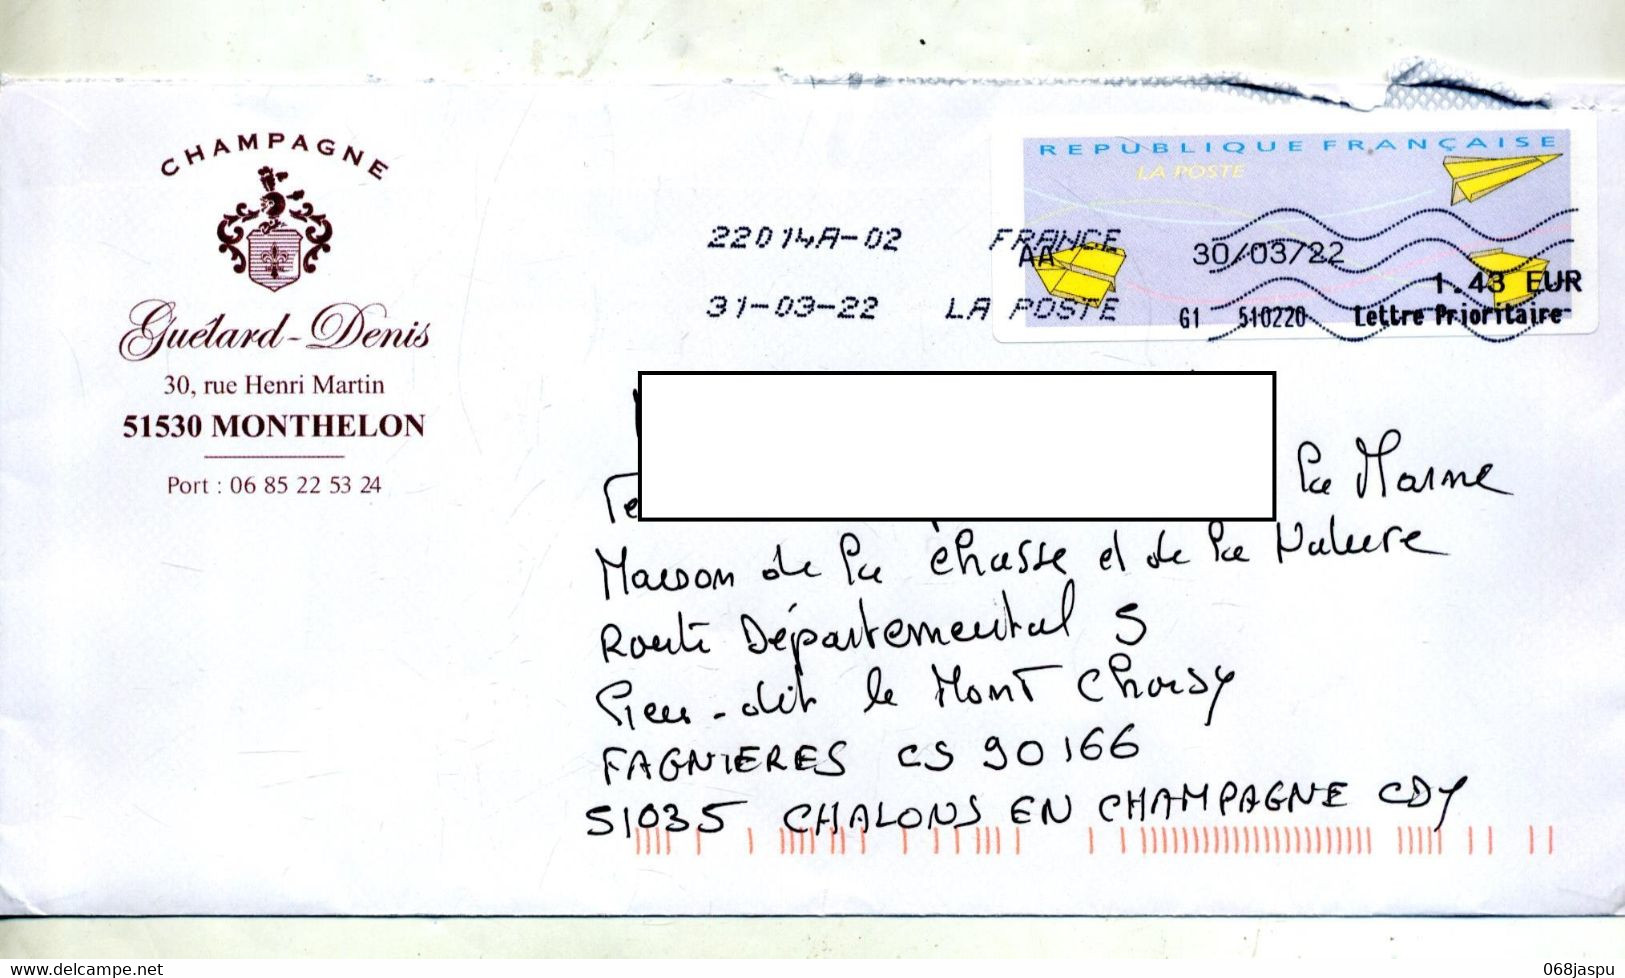 CHAMPAGNE
Guétard-Denis
30, rue Henri Martin
51530 MONTHELON
Port : 06 85 22 53 24
REPUBLIQUE FRANÇAISE
LA POSTE
22014A-02 FRANCE
AA 30/03/22
1.43 EUR
31-03-22 LA POSTE
G1 510220 Lettre Prioritaire
la Marne
Maison de la Chasse et de la Nature
Route Départemental 5
lieu-dit le Mont Choisy
FAGNIERES CS 90166
51035 CHALONS EN CHAMPAGNE CDX
www.delcampe.net
068jaspu